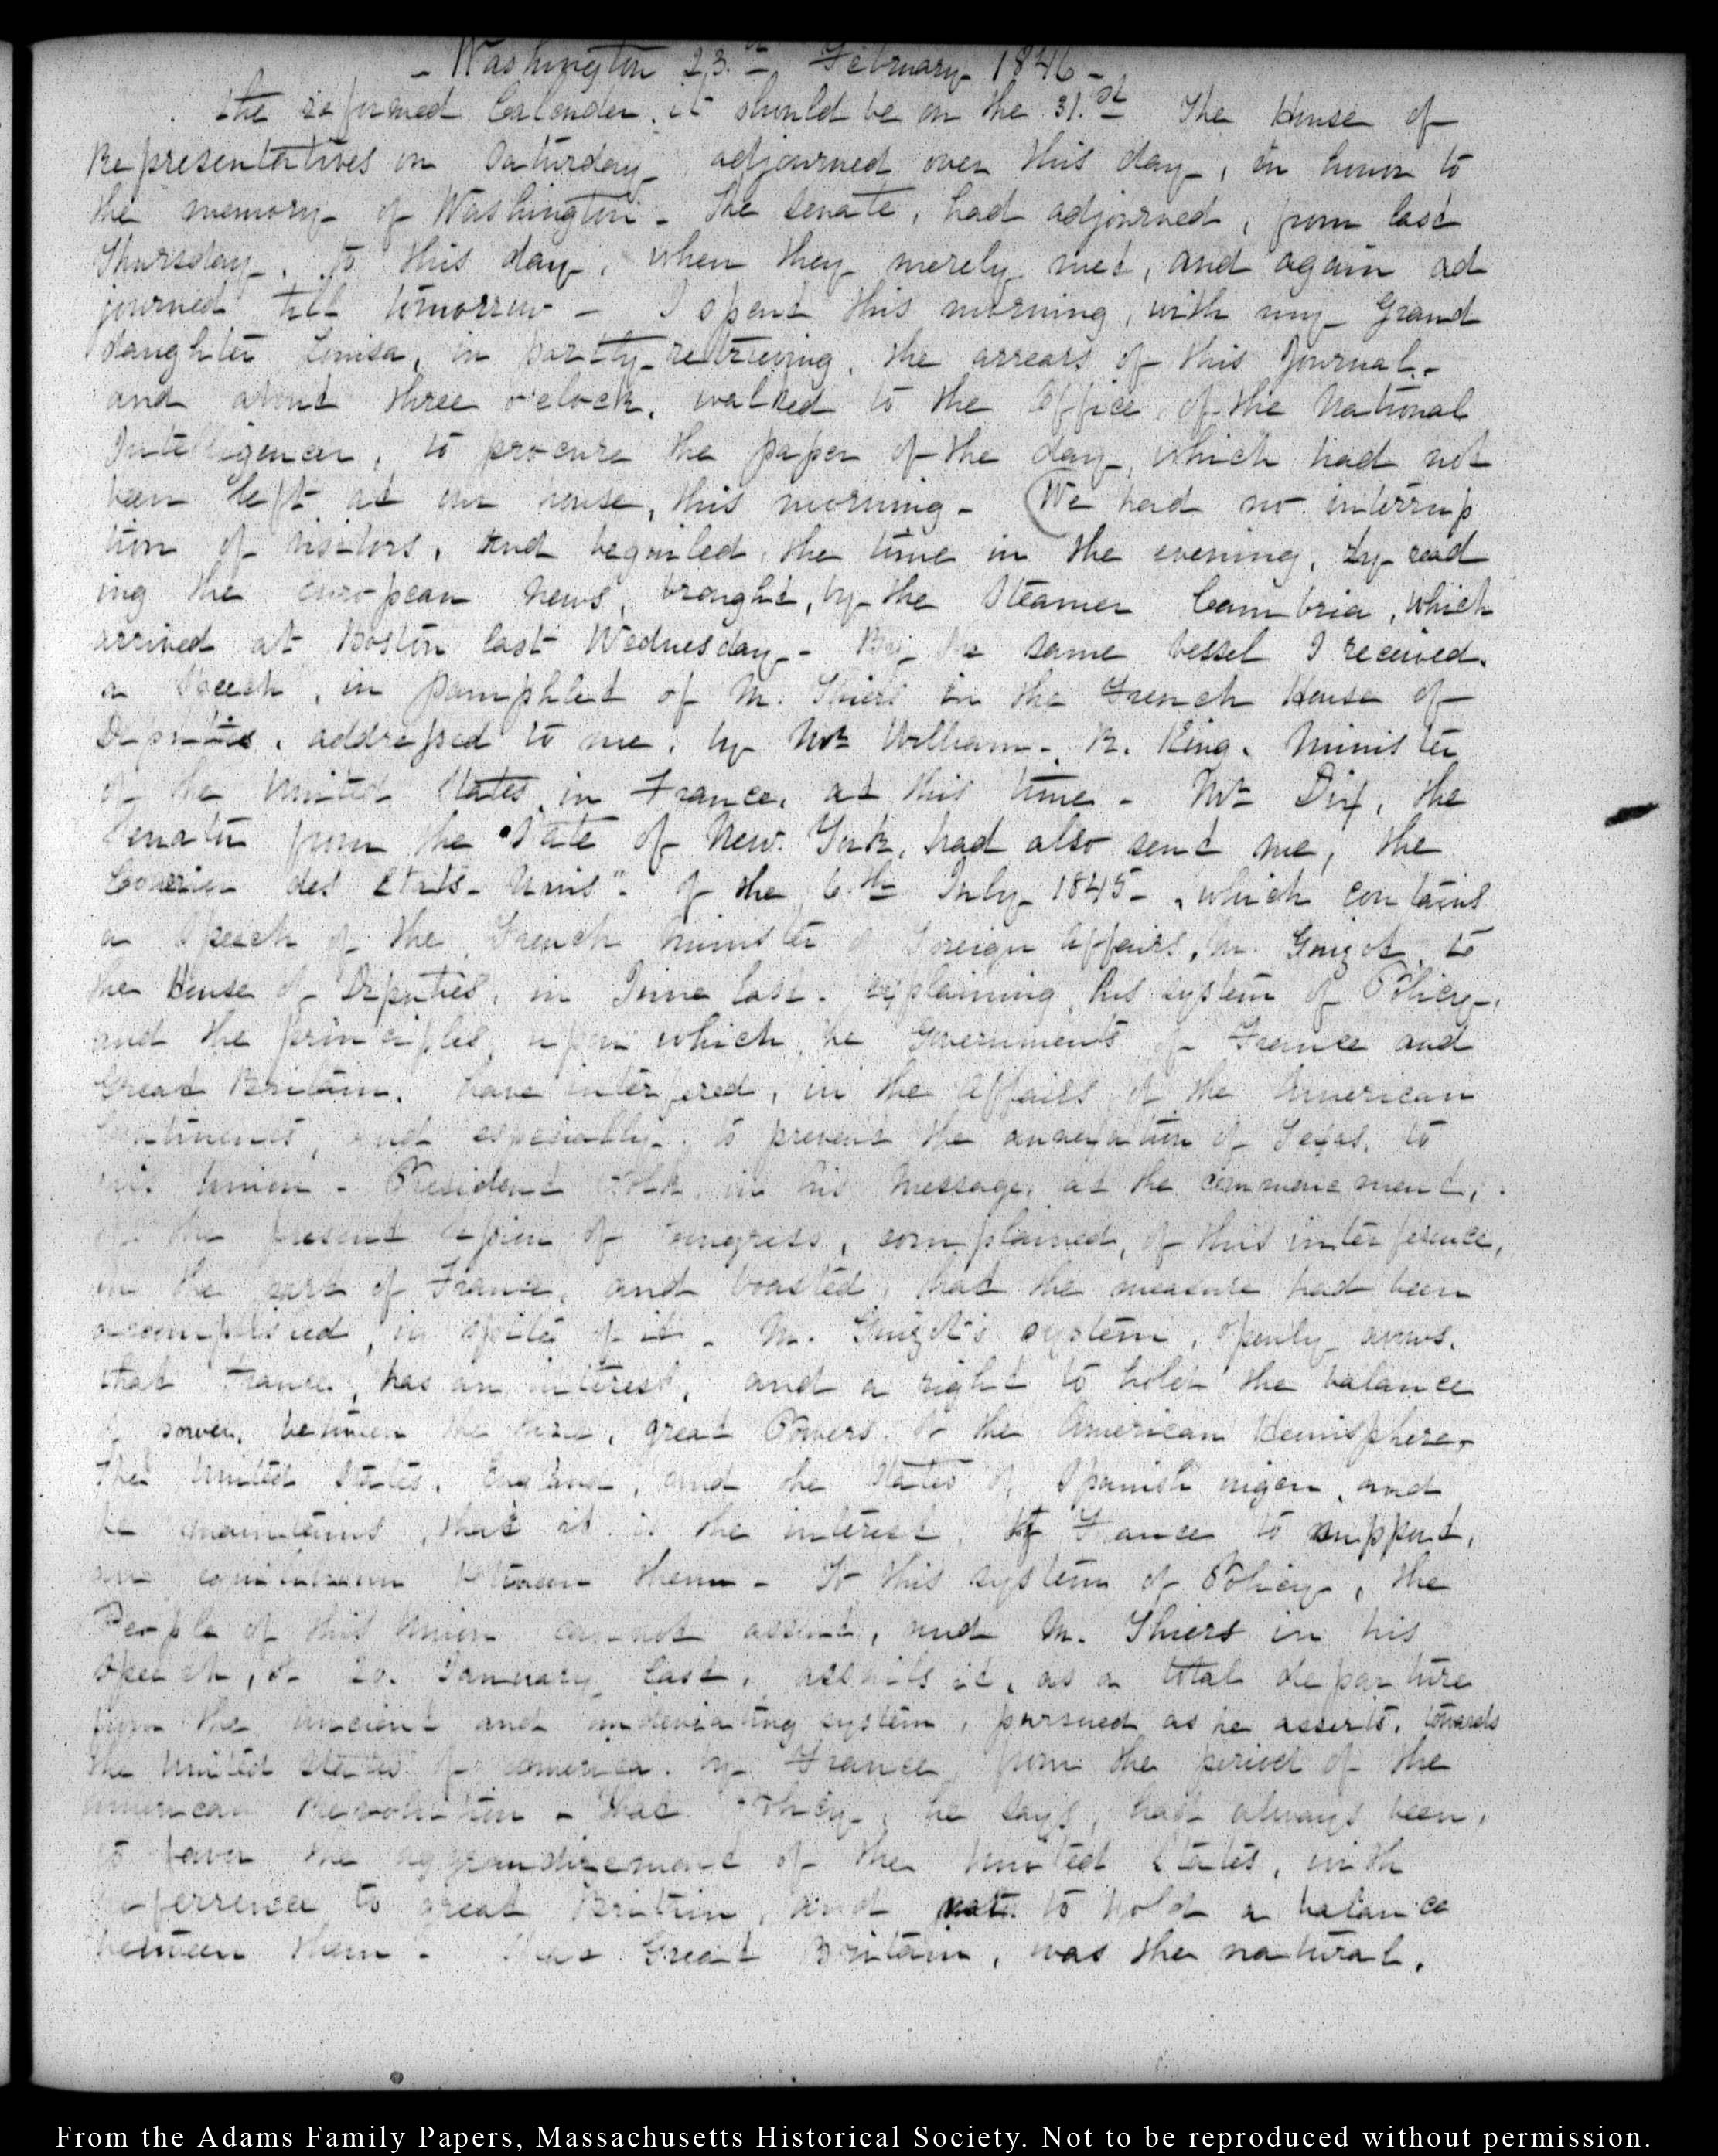 - Washington 23.d February 1846 -
the reformed Calender. it should be on the 31.st The House of
Representatives on Saturday adjourned over this day, in honor to
the memory of Washington - The Senate, had adjourned, from last
Thursday. to this day, when they merely met, and again ad
journed till tomorrow - I spent this morning, with my Grand
daughter Louisa, in partly retrieving, the arrears of this Journal.
and about three o'clock, walked to the Office of the National
Intelligencer, to procure the paper of the day, which had not
been left at our house, this morning - We had no interrup
tion of visitors, and beguiled, the time in the evening, by read
ing the European News, brought, by the Steamer Cambria, which
arrived at Boston last Wednesday - By the same vessel I received.
a Speech, in pamphlet of M. Thiers in the French House of
Deputies, addressed to me, by Mr William. R. King. Minister
of the United States, in France, at this time - Mr Dix, the
Senator from the State of New York, had also sent me, the
Courier des Etats-Unis" of the 6.th July 1845 - , which contains
a Speech of the French Minister of Foreign Affairs, M. Guizot to
the House of Deputies, in June last. explaining his system of Policy,
and the principles, upon which the Governments of France and
Great Britain. have interfered, in the affairs of the American
Continents, and especially, to prevent the annexation of Texas. to
this Union - President Polk in his Message, at the commencement,
of the present Session of Congress, complained, of this interference,
on the part of France, and boasted, that the measure had been
accomplished, in spite of it - M. Guizot's system, openly avows.
that France, has an interest, and a right to hold the balance
of power, between the three, great Powers of the American Hemisphere,
The United States, England, and the States of Spanish origin, and
he maintains, that it is the interest, of France to support,
an equilibrium between them - To this system of Policy, the
People of this Union cannot assent, and M. Thiers in his
speech, of 20. January last, assails it, as a total departure
from the ancient and undeviating system, pursued as he asserts, towards
the United States of America. by France from the period of the
American Revolution - That Policy, he says, has always been,
to favor the aggrandizement of the United States, with
to great Britain, and not to hold a balance
between them - That Great Britain, was the natural.
From the Adams Family Papers, Massachusetts Historical Society. Not to be reproduced without permission.